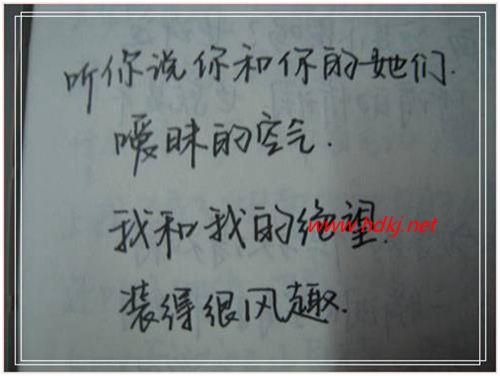 听你说你和你的她们.
暧昧的空气.
我和我的绝望.
www.hdkj.net
装得很风趣.